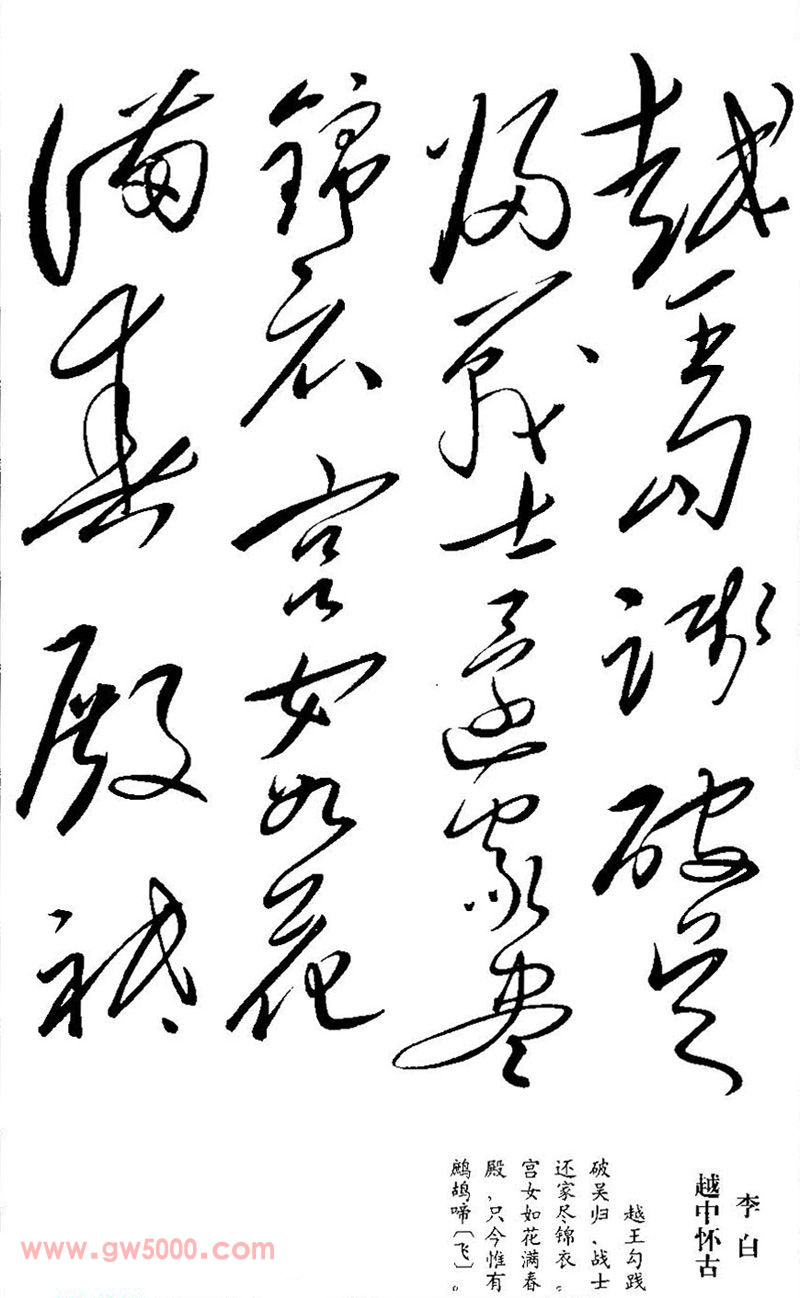 越王勾踐破吳
歸戰士還家盡
錦衣宮女如花
滿春殿祇
李白
越中怀古
越王勾践
破吴归，战士
还家尽锦衣。
宫女如花满春
殿，只今惟有
鹧鸪啼〔飞〕。
www.gw5000.com